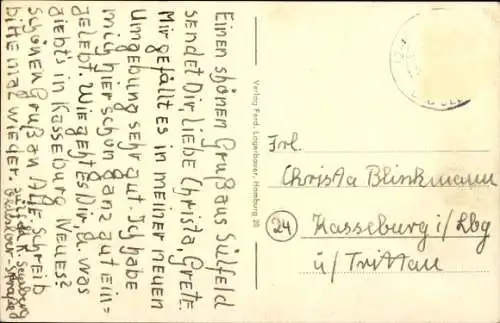 Einen shönen Gruß aus Sülfeld
sendet Dir, liebe Christa, Grete.
Mir gefällt es in meiner neuen
Umgebung sehr gut. Ich habe
mich hier schon ganz gut ein=
gelebt. Wie geht es Dir, u. was
giebt's in Kasseburg Neues?
Schönen Gruß an Alle. Schreib
bitte mal wieder.
Verlag Ferd. Lagerbauer, Hamburg 20
Frl.
Christa Blinkmann
24 Kasseburg i/Lbg
ü/Trittau